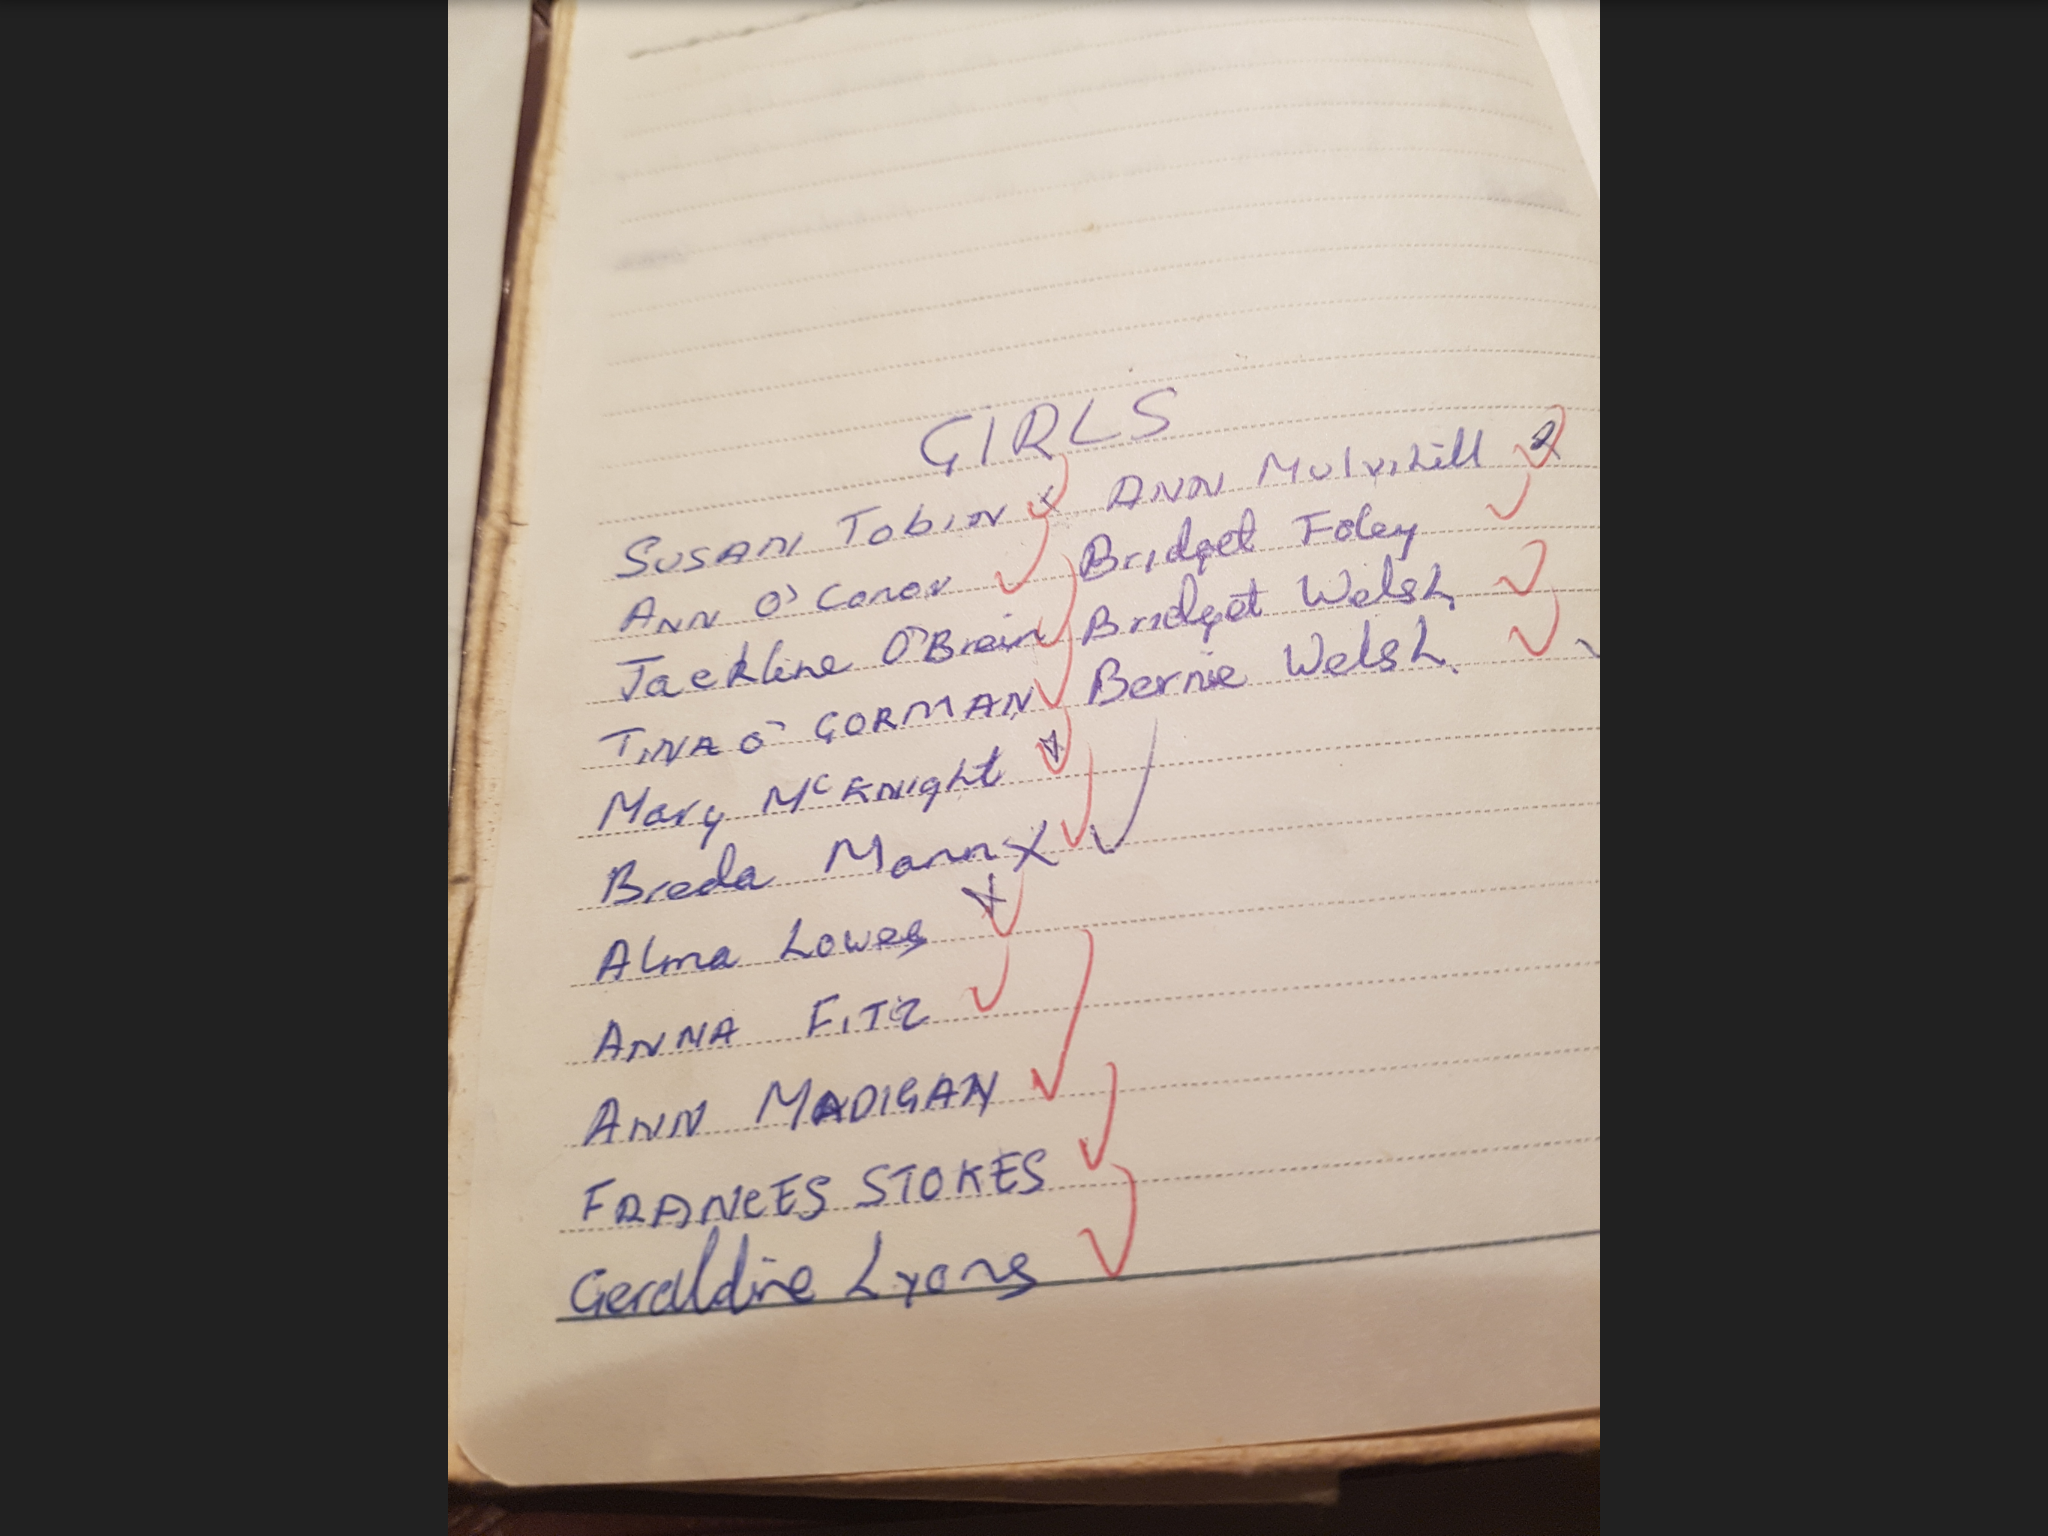 GIRLS
SUSAN TobIN x ANN Mulvihill
ANN O'Conor ✓ Bridget Foley ✓
Jackline O'Brein ✓ Bridget Welsh ✓
TINA O'GORMAN ✓ Bernie Welsh ✓
Mary McKnight
Breda Mann X ✓ ✓
Alma Lowes x ✓
ANNA FITZ ✓
ANN MADIGAN ✓
FRANCES STOKES ✓
Geraldine Lyons ✓